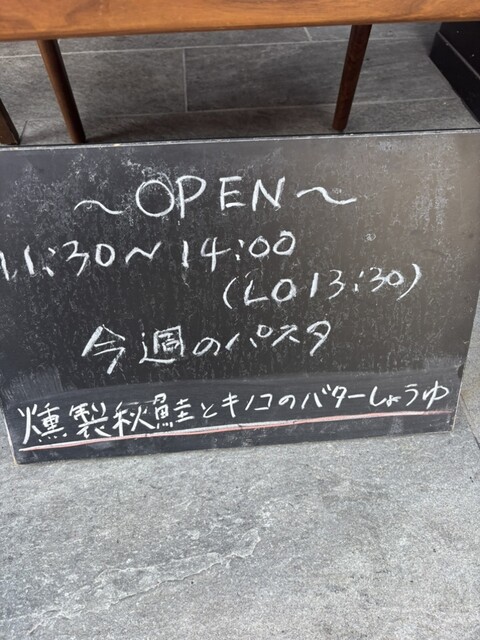 ～OPEN～
11:30～14:00
(LO 13:30)
今週のパスタ
燻製秋鮭とキノコのバターしょうゆ